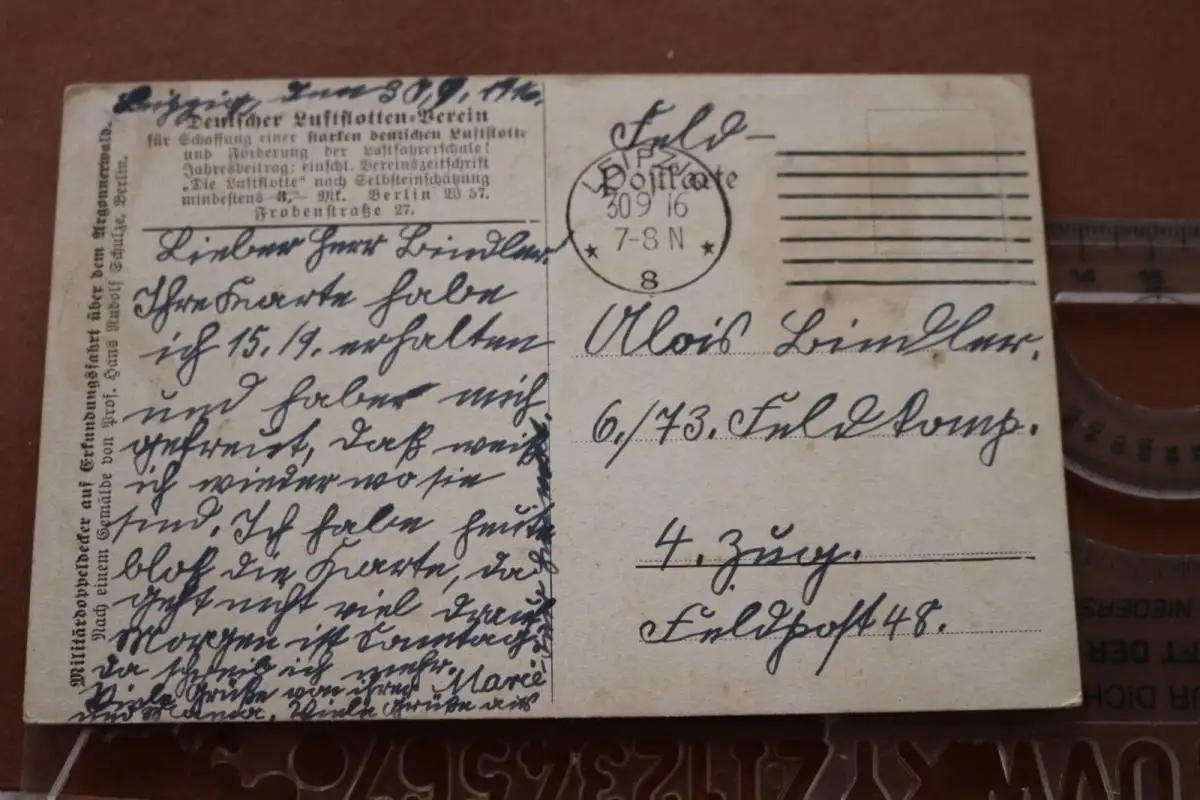 Leipzig, den 30.9.1916.
Deutscher Luftflotten-Verein
für Schaffung einer starken deutschen Luftflotte
und Förderung der Luftfahrerschule!
Jahresbeitrag: einschl. Vereinszeitschrift
„Die Luftflotte“ nach Selbsteinschätzung
mindestens 3,– Mk. Berlin W 57.
Frobenstraße 27.
Lieber Herr Bindler.
Ihre Karte habe
ich 15.19. erhalten
und habe mich
gefreut, daß weiß
ich wieder wo sie
sind. Ich habe heute
bloß die Karte, da
geht nicht viel drauf
Morgen ist Sonntag
da schreib ich mehr.
Viele Grüße von ihrer Marie
und Mama. Viele Grüße aus
Militärdoppeldecker auf Erkundungsfahrt über dem Argonnerwald.
Nach einem Gemälde von Prof. Hans Rudolf Schulze, Berlin.
Feld-
Postkarte
LEIPZIG
30 9 16
7-8 N
8
Alois Bindler.
6./73. Feldkomp.
4. Zug.
Feldpost 48.
14 15
NIEDERS
FT DER
R DICH
UVWXYZ1234567